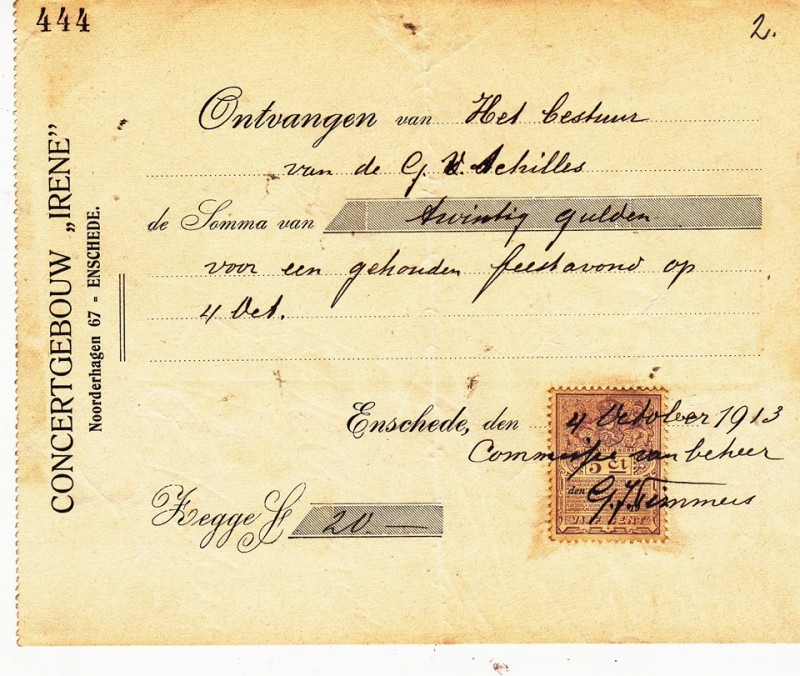 444
2.
CONCERTGEBOUW „IRENE”
Noorderhagen 67 - ENSCHEDE.
Ontvangen van Het bestuur
van de G. V. Achilles
de Somma van twintig gulden
voor een gehouden feestavond op
4 Oct.
Enschede, den 4 October 1913
Commissie van beheer
5 Ct
den
G. J. Timmers
Zegge f 20. —